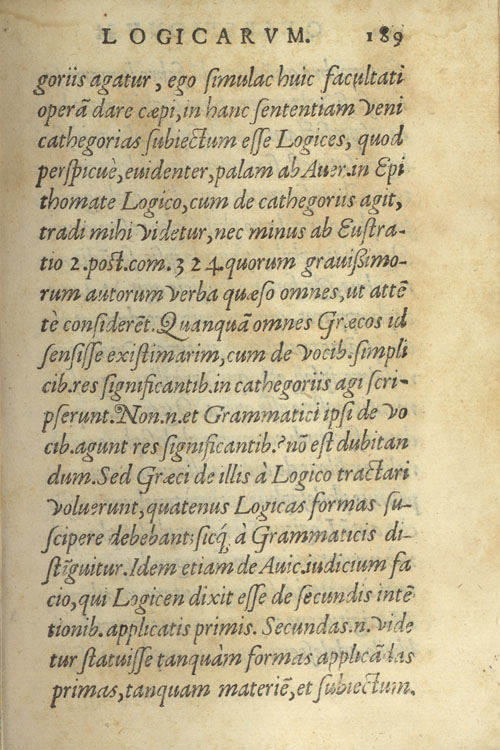 LOGICARVM. 189
goriis agatur, ego simulac huic facultati
operā dare cæpi, in hanc sententiam veni
cathegorias subiectum esse Logices, quod
perspicuè, euidenter, palam ab Auer. in Epi
thomate Logico, cum de cathegoriis agit,
tradi mihi videtur, nec minus ab Eustra-
tio 2. post. com. 3 24. quorum grauißimo-
rum autorum verba quæso omnes, ut attē
tè considerēt. Quanquā omnes Græcos id
sensisse existimarim, cum de vocib. simpli
cib. res significantib. in cathegoriis agi scri-
pserunt. Non. n. et Grammatici ipsi de vo
cib. agunt res significantib.? nō est dubitan
dum. Sed Græci de illis à Logico tractari
voluerunt, quatenus Logicas formas su-
scipere debebant: sicq́ à Grammaticis di-
stīguitur. Idem etiam de Auic. iudicium fa
cio, qui Logicen dixit esse de secundis intē
tionib. applicatis primis. Secundas. n. vide
tur statuisse tanquàm formas applicādas
primas, tanquam materiē, et subiectum.